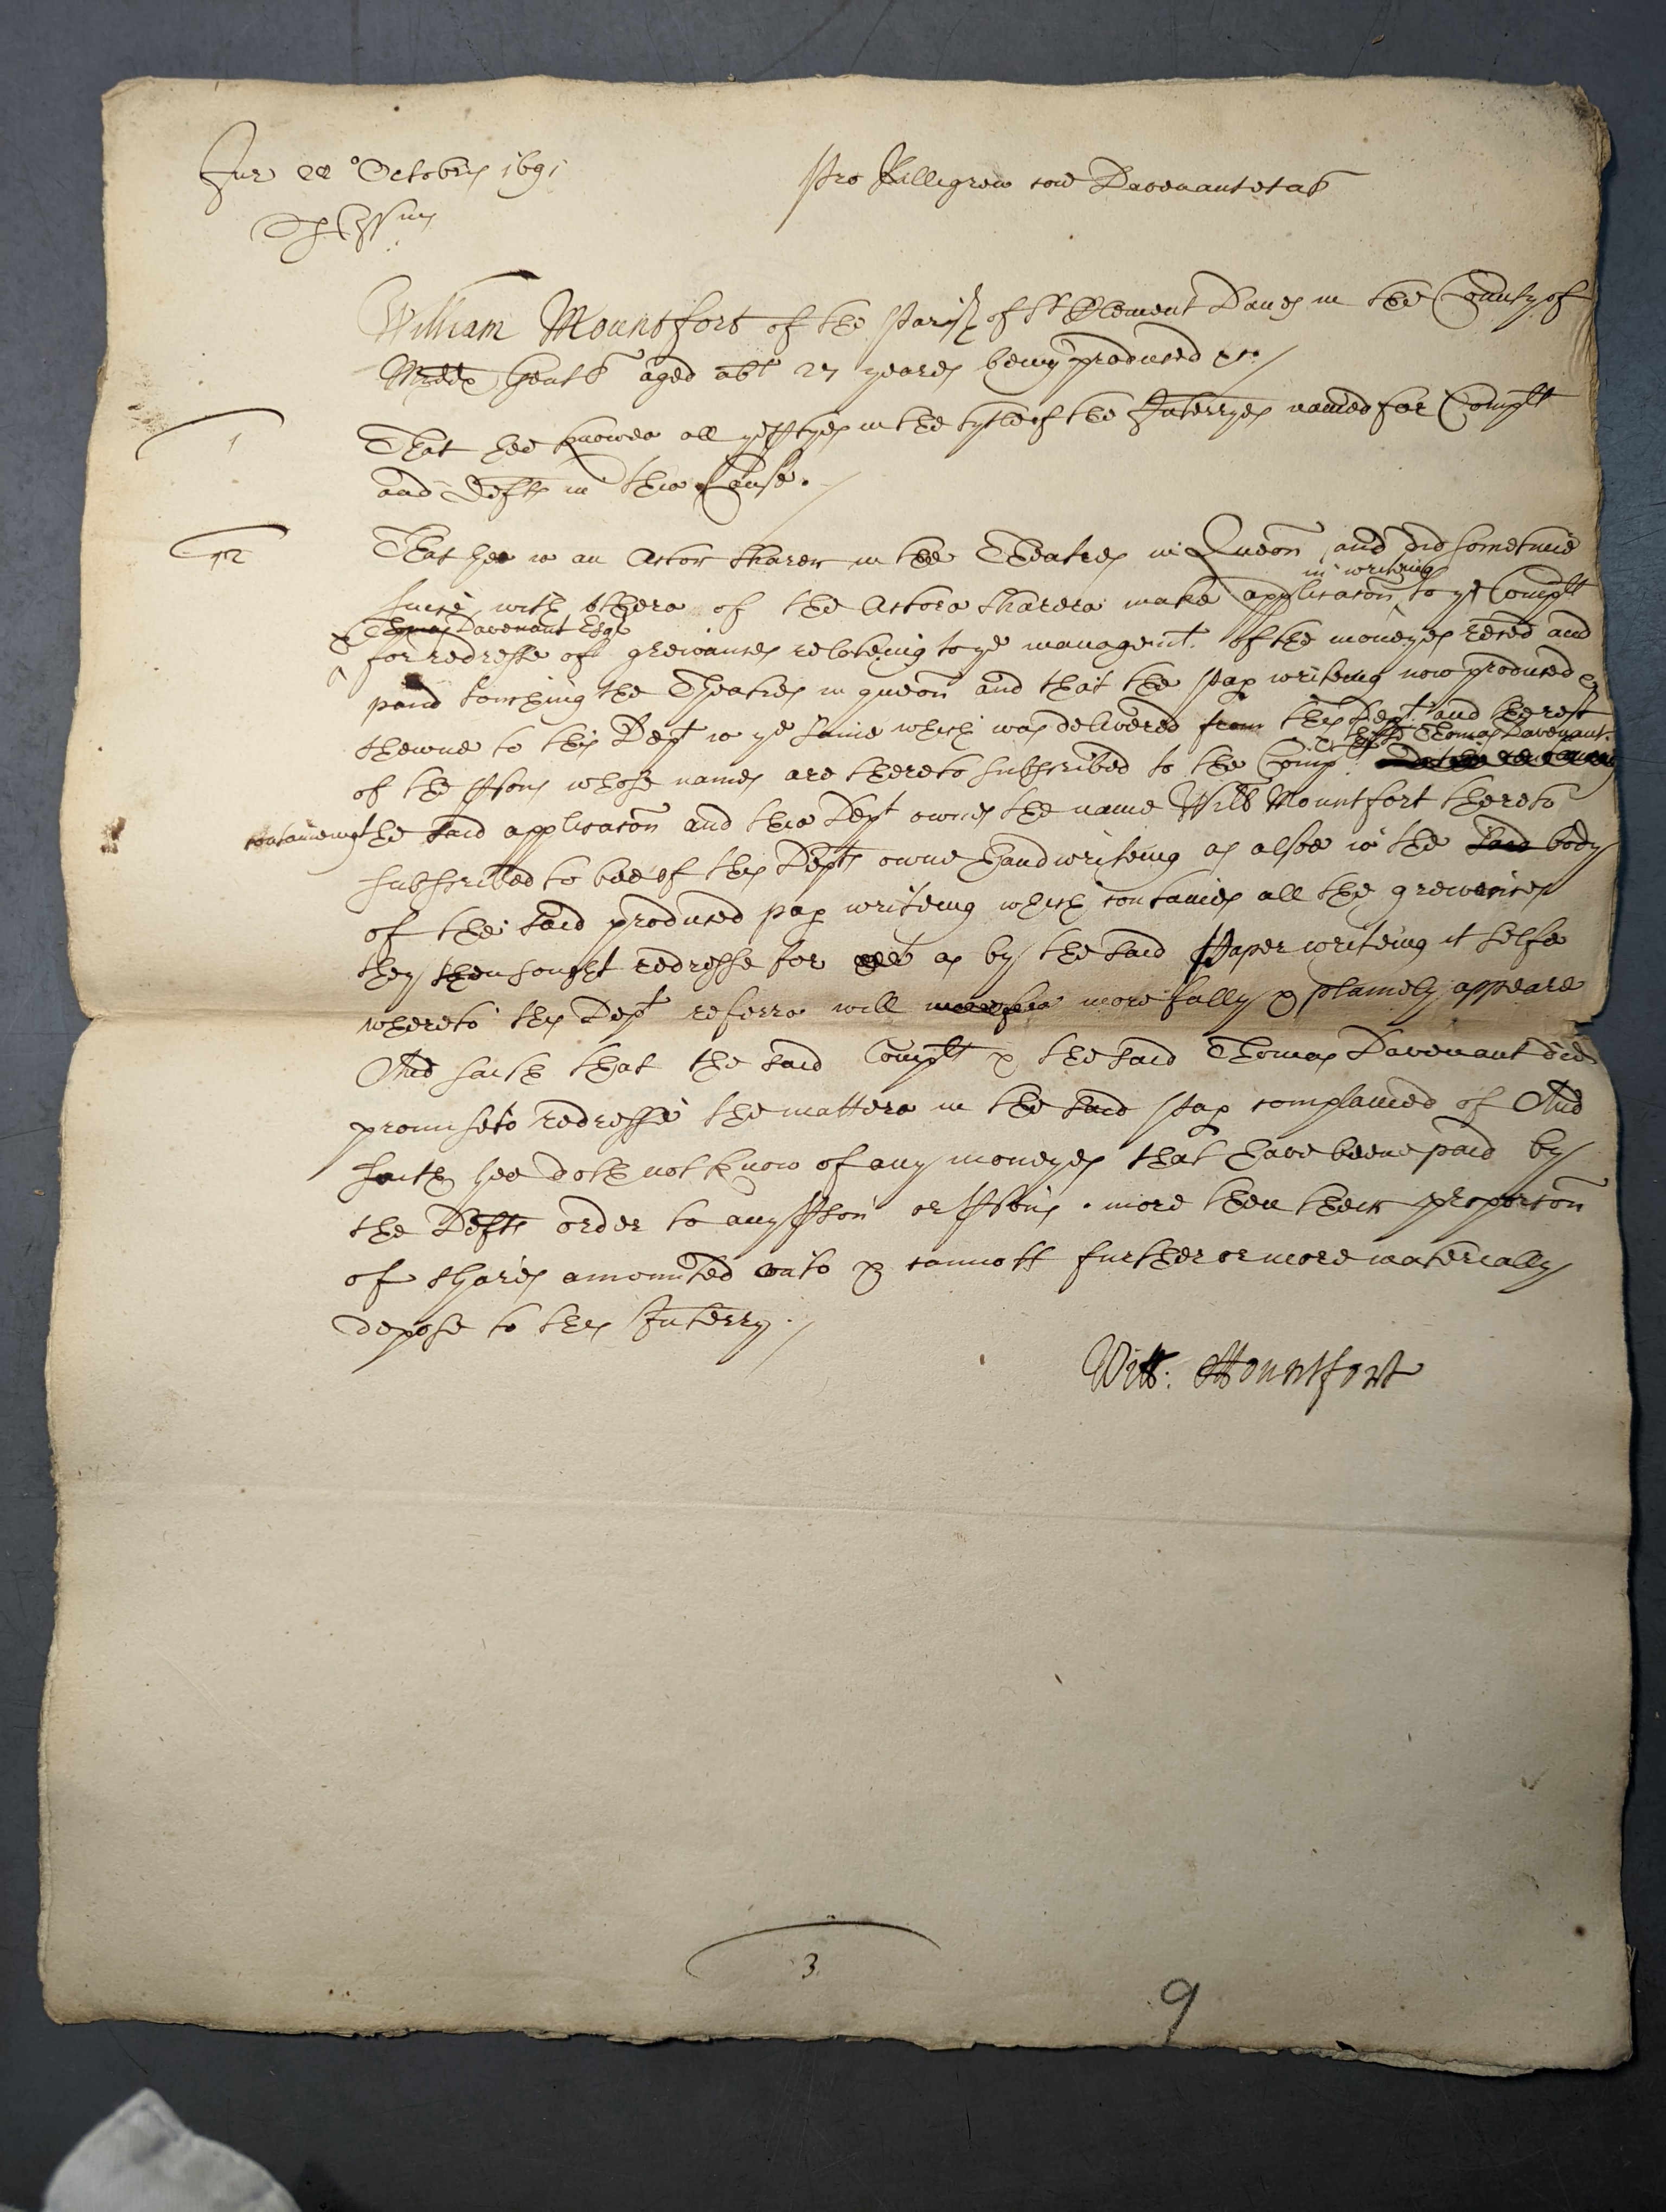 Jur 22° Octobris 1691
Pro Killigrew con Davenant et al
William Mountfort of the Parish of St Clement Danes in the County of
Middx Gent aged abt 27 yeares being produced &c.
1
That hee knowes all ye ptyes in the tytle of the Interryes named for Complt
and Defts in this Cause.
12
That hee is an Actor Sharer in the Theatres in Queon and did sometime
in writing
since with others of the Actors Sharers make applicacon to ye Complt
& Thomas Davenant Esqr
for redresse of greivances relateing to ye managemt. of the moneyes reced and
paid touching the Theatres in queon and that the pap writeing now produced &
shewne to this Dept is ye same which was delivered from this Dept. and the rest
& the sd Thomas Davenant.
of the psons whose names are thereto subscribed to the Complt
containeing the said applicacon and this Dept ownes the name Will Mountfort thereto
subscribed to bee of this Depts owne handwriteing as alsoe is the said body
of the said produced pap writeing which containes all the greivances
they then sought redresse for as by the said Paper writeing it selfe
whereto this Dept referrs will more fully & plainely appeare
And saith that the said Complt & the said Thomas Davenant did
promise to redresse the matters in the said pap complained of And
saith hee doth not know of any moneyes that have beene paid by
the Defts order to any pson or psons more then their proporcon
of shares amounted unto & cannott further or more materially
depose to this Interry.
Will: Mountfort
3
9